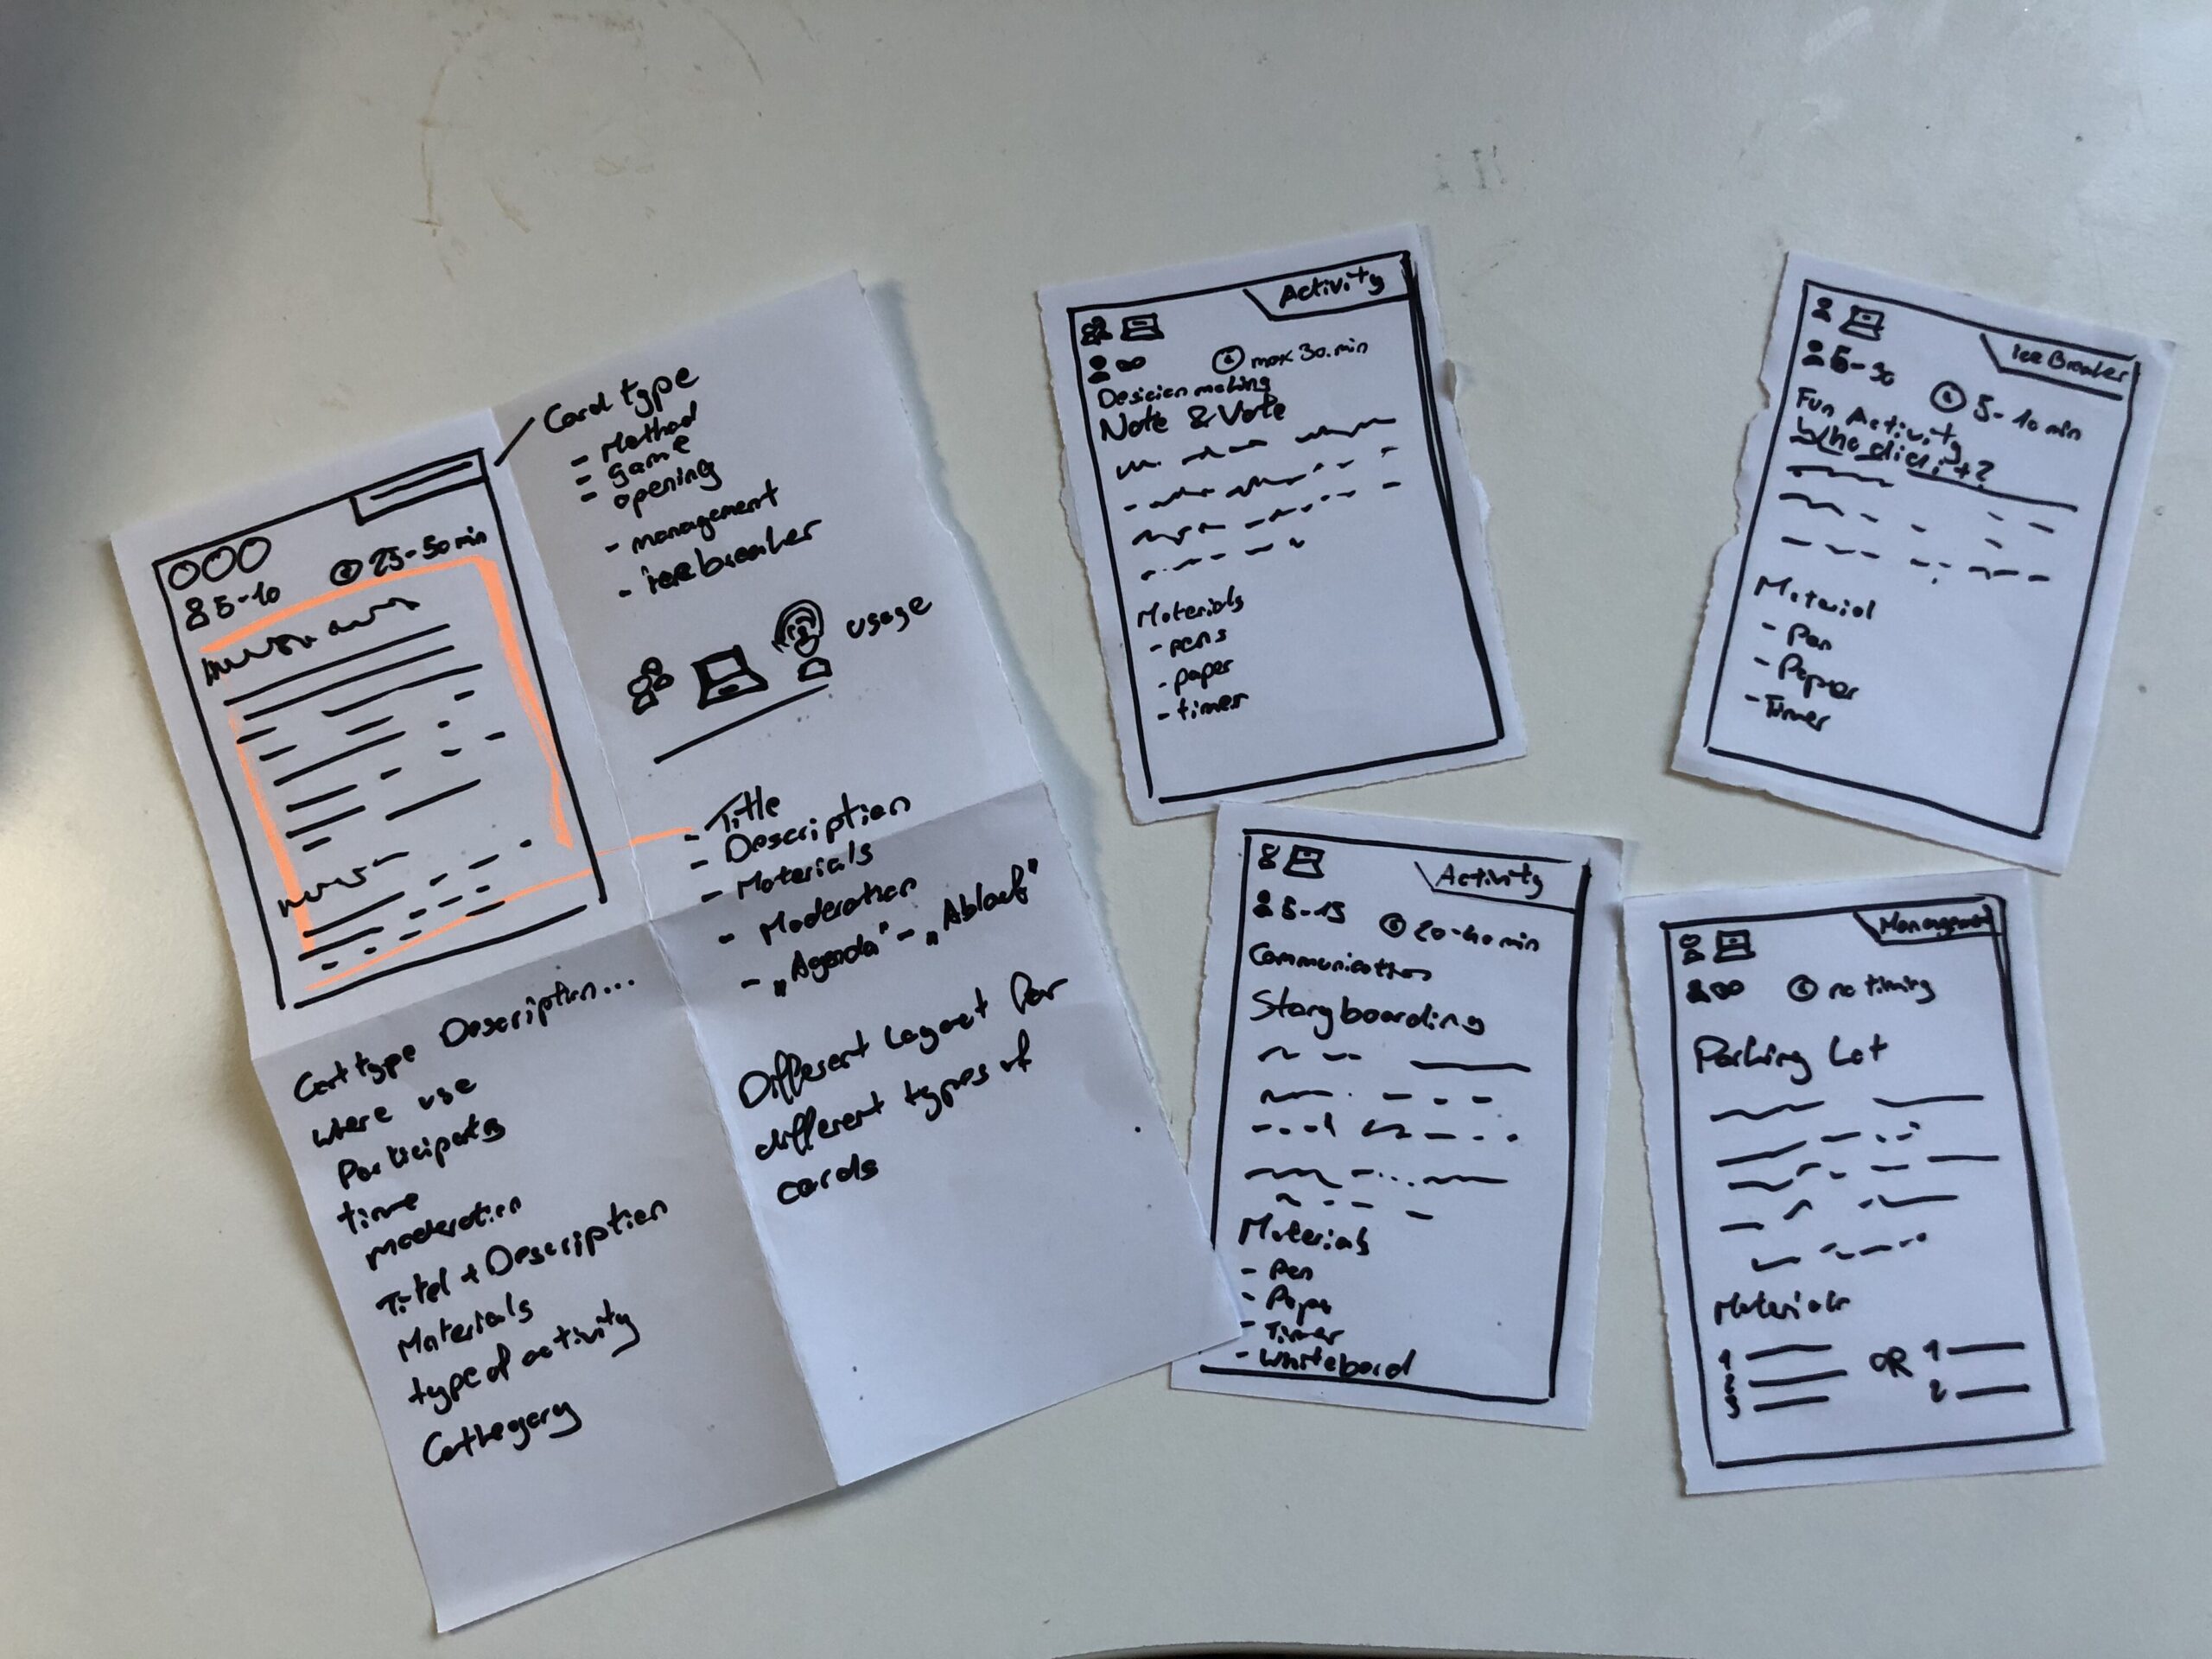 Card type
- Method
- game
- opening
- management
- icebreaker
usage
5-10
25-50 min
- Title
- Description
- Materials
- Moderation
- „Agenda" - „Ablauf"
Different Layout for
different types of
cards
type Description...
where use
time
moderation
Titel + Description
Materials
type of activity
Cathegory
Activity
∞
max 30.min
Note & Vote
Materials
- pens
- paper
- timer
Ice Breaker
5-10 min
Fun Activity
Who did it?
Material
- Pen
- Paper
- Timer
Activity
5-15
20-40 min
Communication
Storyboarding
Materials
- Pen
- Timer
- Whitebord
∞
no timing
Parking Lot
1
2
3
OR
1
2